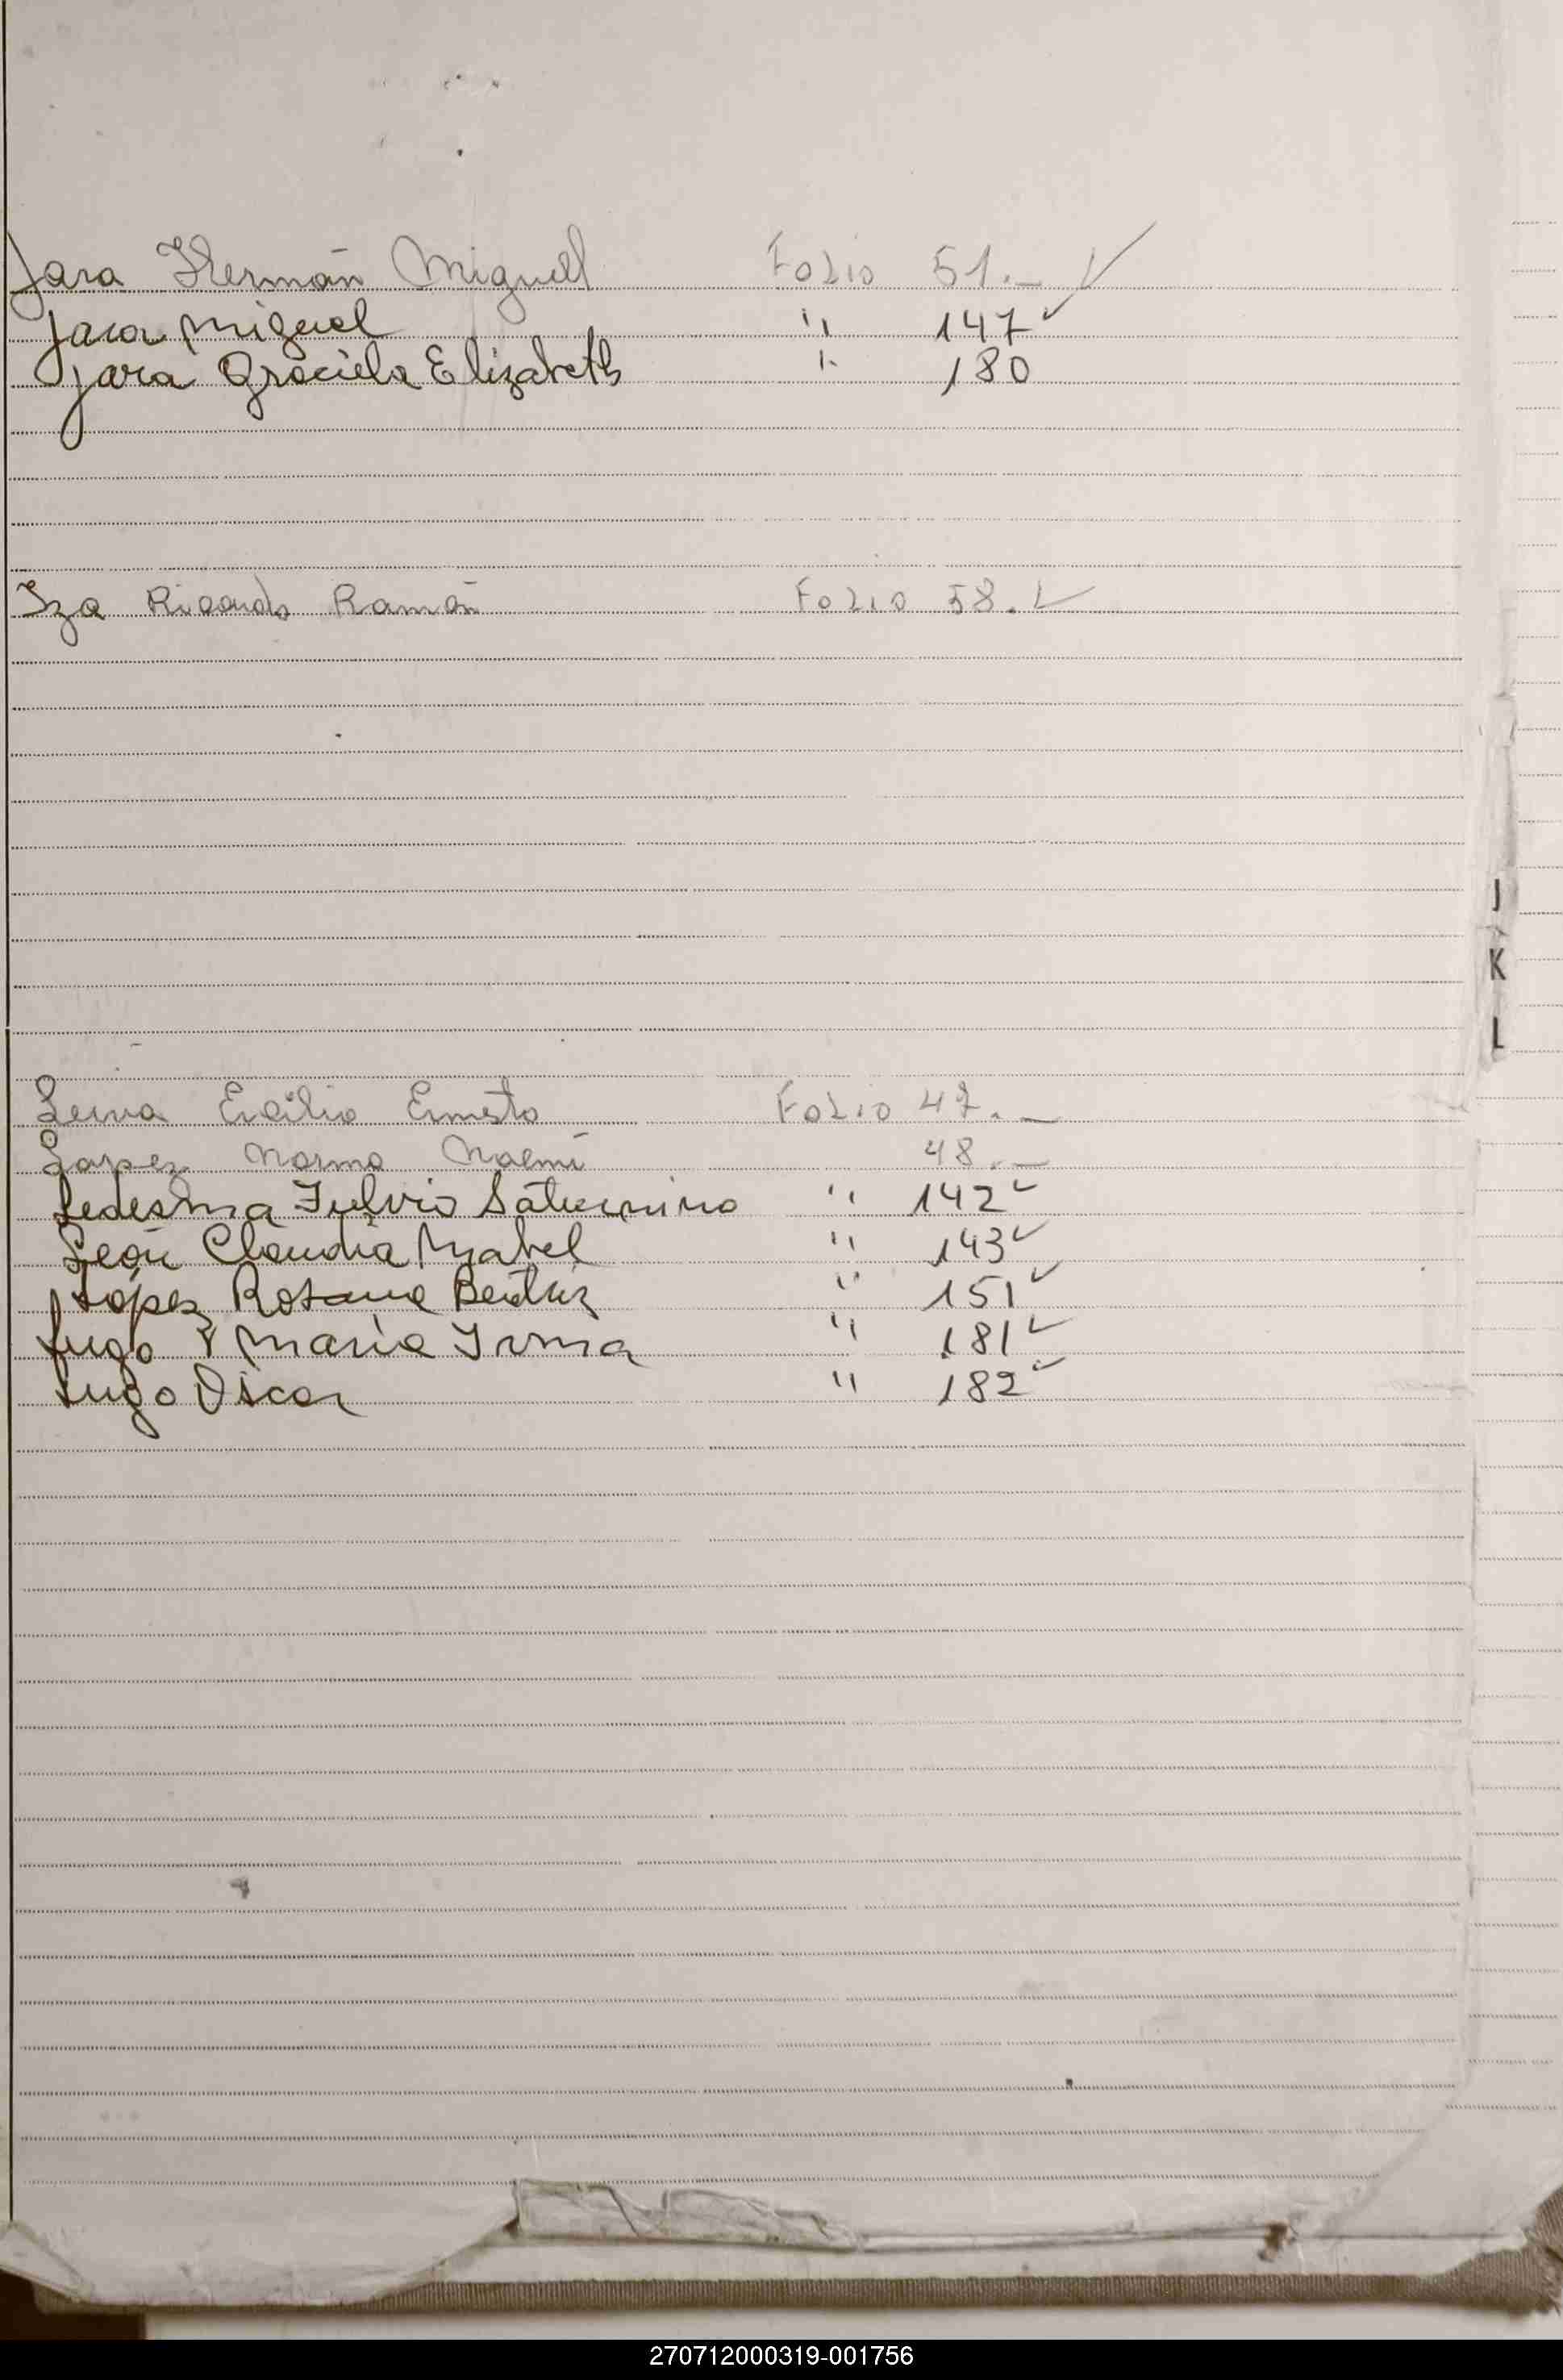 Jara Hernán Miguel Folio 51.- ✓
Jara Miguel " 147 ✓
Jara Graciela Elizabeth " 180
Iza Ricardo Ramón Folio 58. ✓
J
K
L
Leiva Ecilio Ernesto Folio 47.-
Lopez Norma Noemí 48.-
Ledesma Fulvio Saturnino " 142 ✓
León Claudia Mabel " 143 ✓
López Rosana Beatriz " 151 ✓
Lugo María Irma " 181 ✓
Lugo Oscar " 182 ✓
270712000319-001756